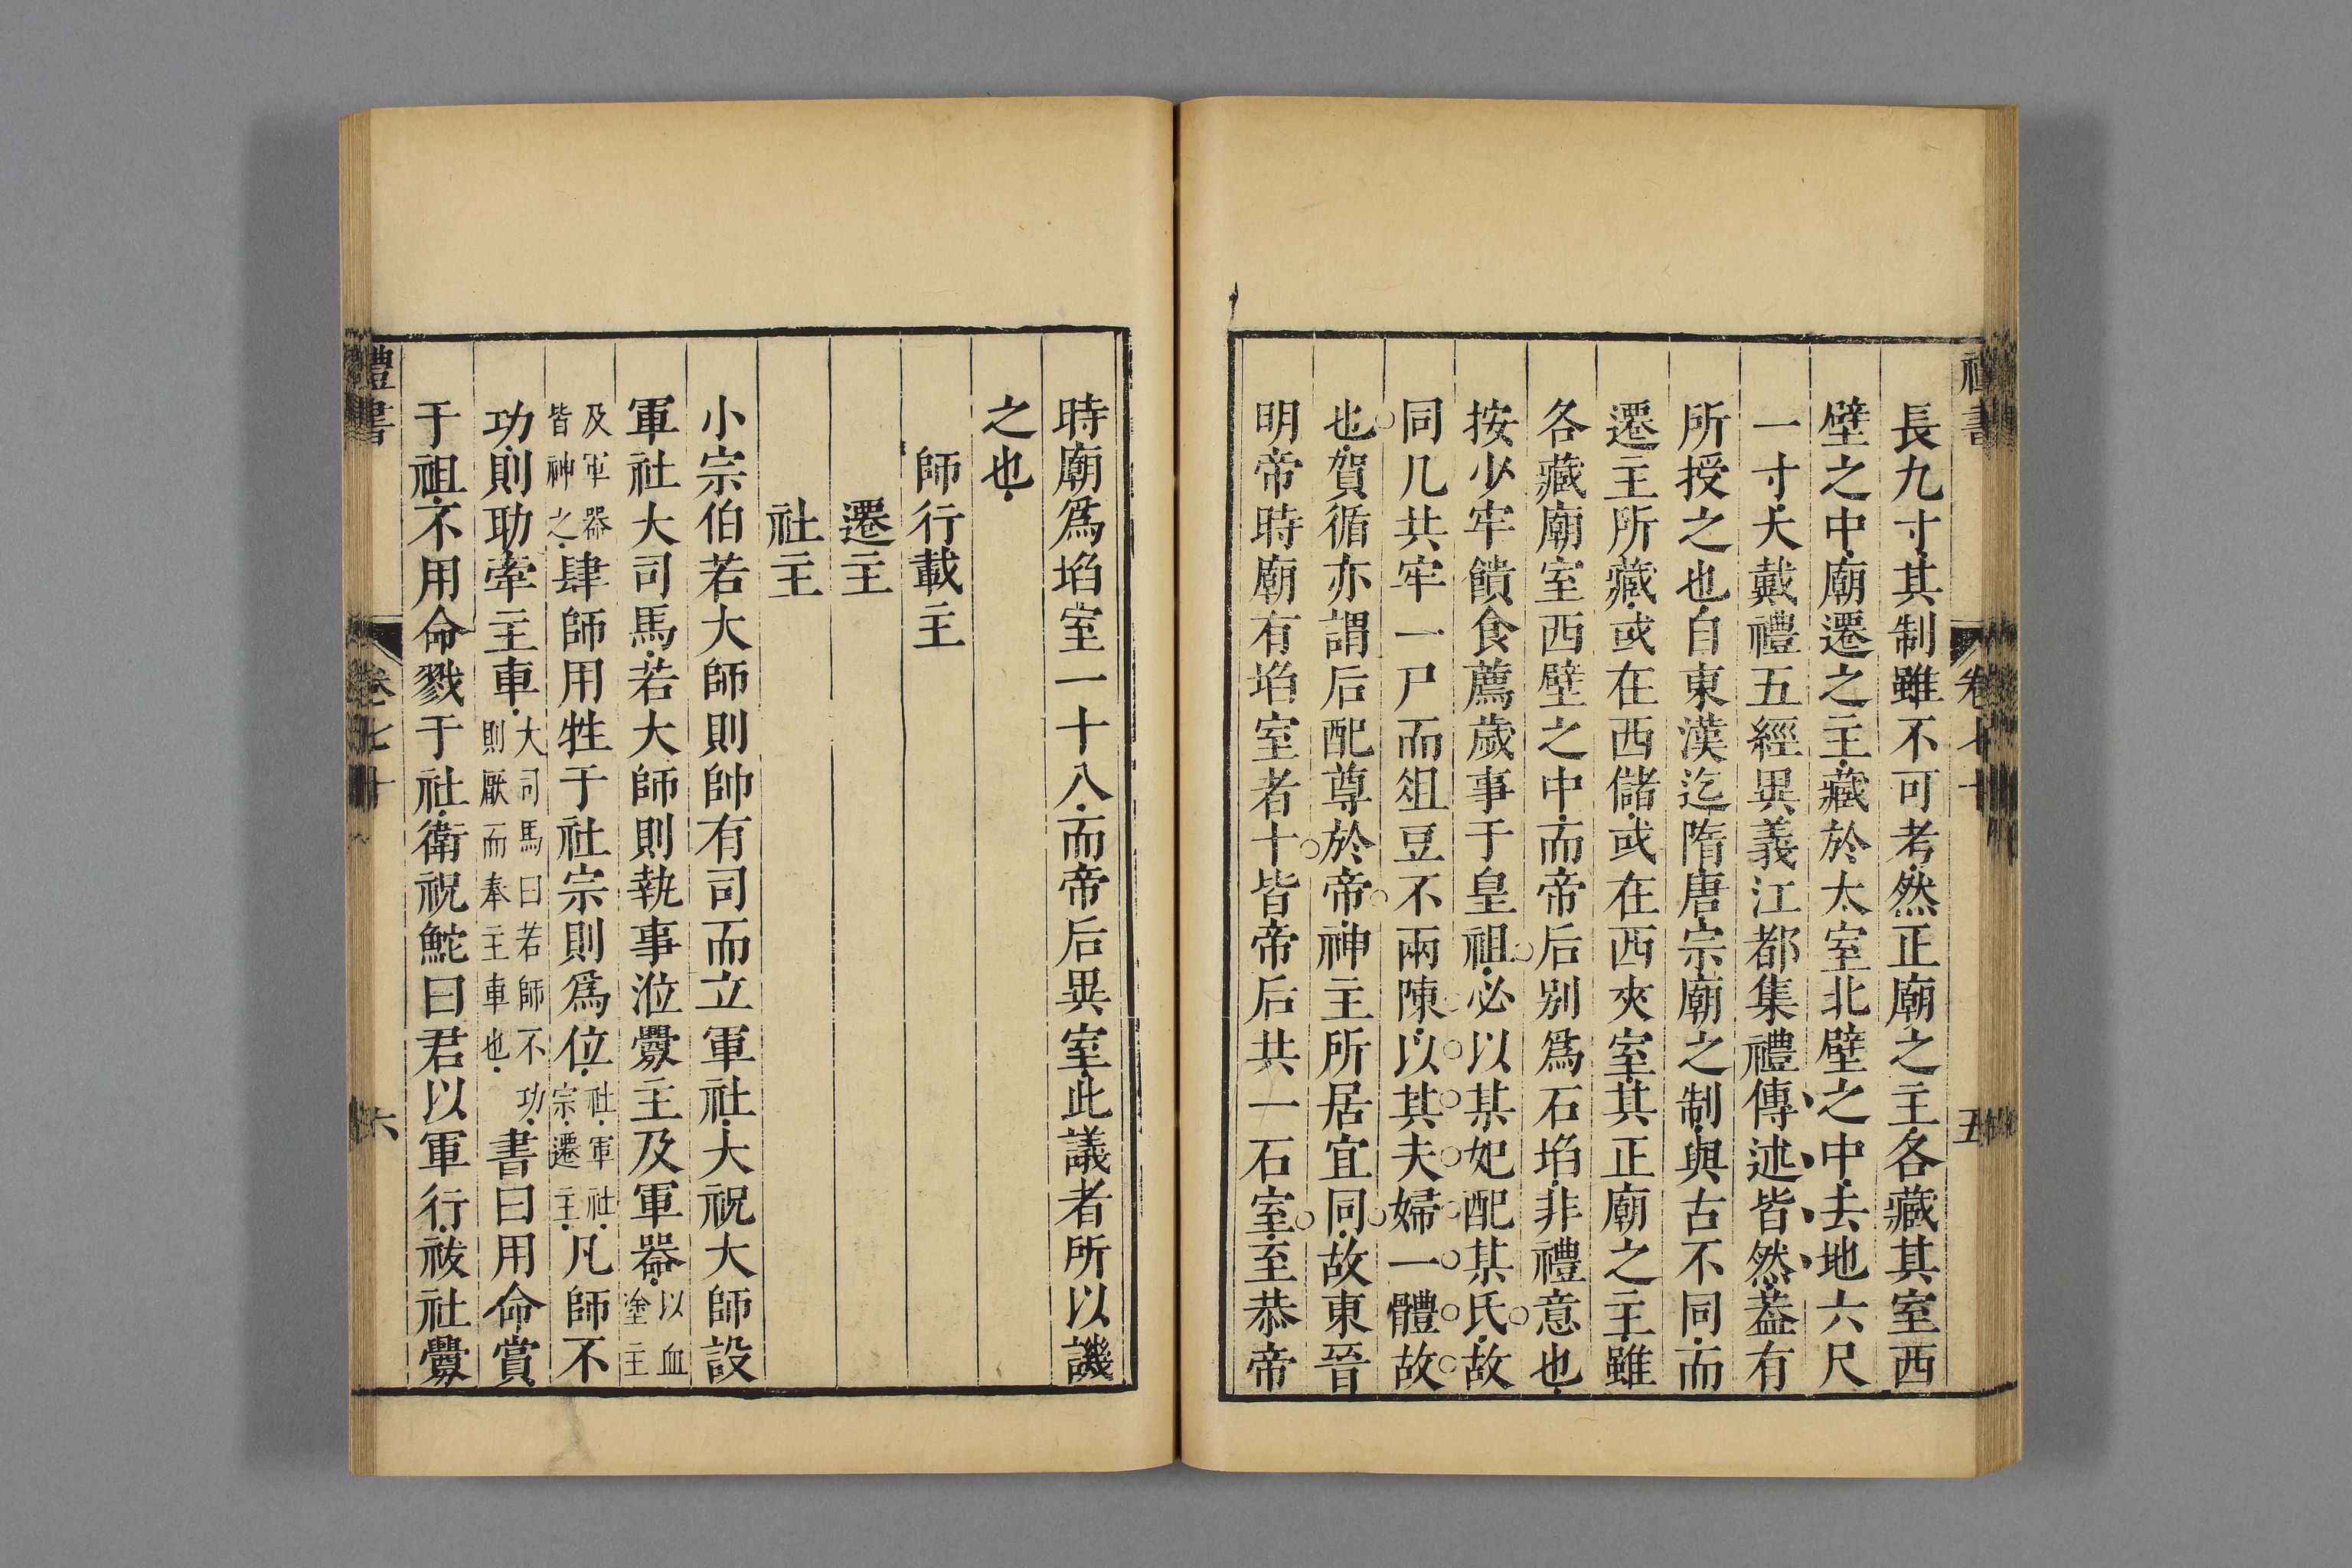 禮書
卷七十
五
長九寸其制雖不可考然正廟之主各藏其室西
壁之中廟遷之主藏於太室北壁之中去地六尺
一寸大戴禮五經異義江都集禮傳述皆然葢有
所授之也自東漢迄隋唐宗廟之制與古不同而
遷主所藏或在西儲或在西夾室其正廟之主雖
各藏廟室西壁之中而帝后別爲石埳非禮意也
按少牢饋食薦歲事于皇祖必以某妃配某氏故
同几共牢一尸而俎豆不兩陳以其夫婦一體故
也賀循亦謂后配尊於帝神主所居宜同故東晉
明帝時廟有埳室者十皆帝后共一石室至恭帝
時廟爲埳室一十八而帝后異室此議者所以譏
之也
師行載主
遷主
社主
小宗伯若大師則帥有司而立軍社大祝大師設
軍社大司馬若大師則執事涖釁主及軍器以血塗主
及軍器皆神之肆師用牲于社宗則爲位社軍社宗遷主凡師不
功則助牽主車大司馬曰若師不功則厭而奉主車也書曰用命賞
于祖不用命戮于社衛祝鮀曰君以軍行祓社釁
禮書
卷七十
六